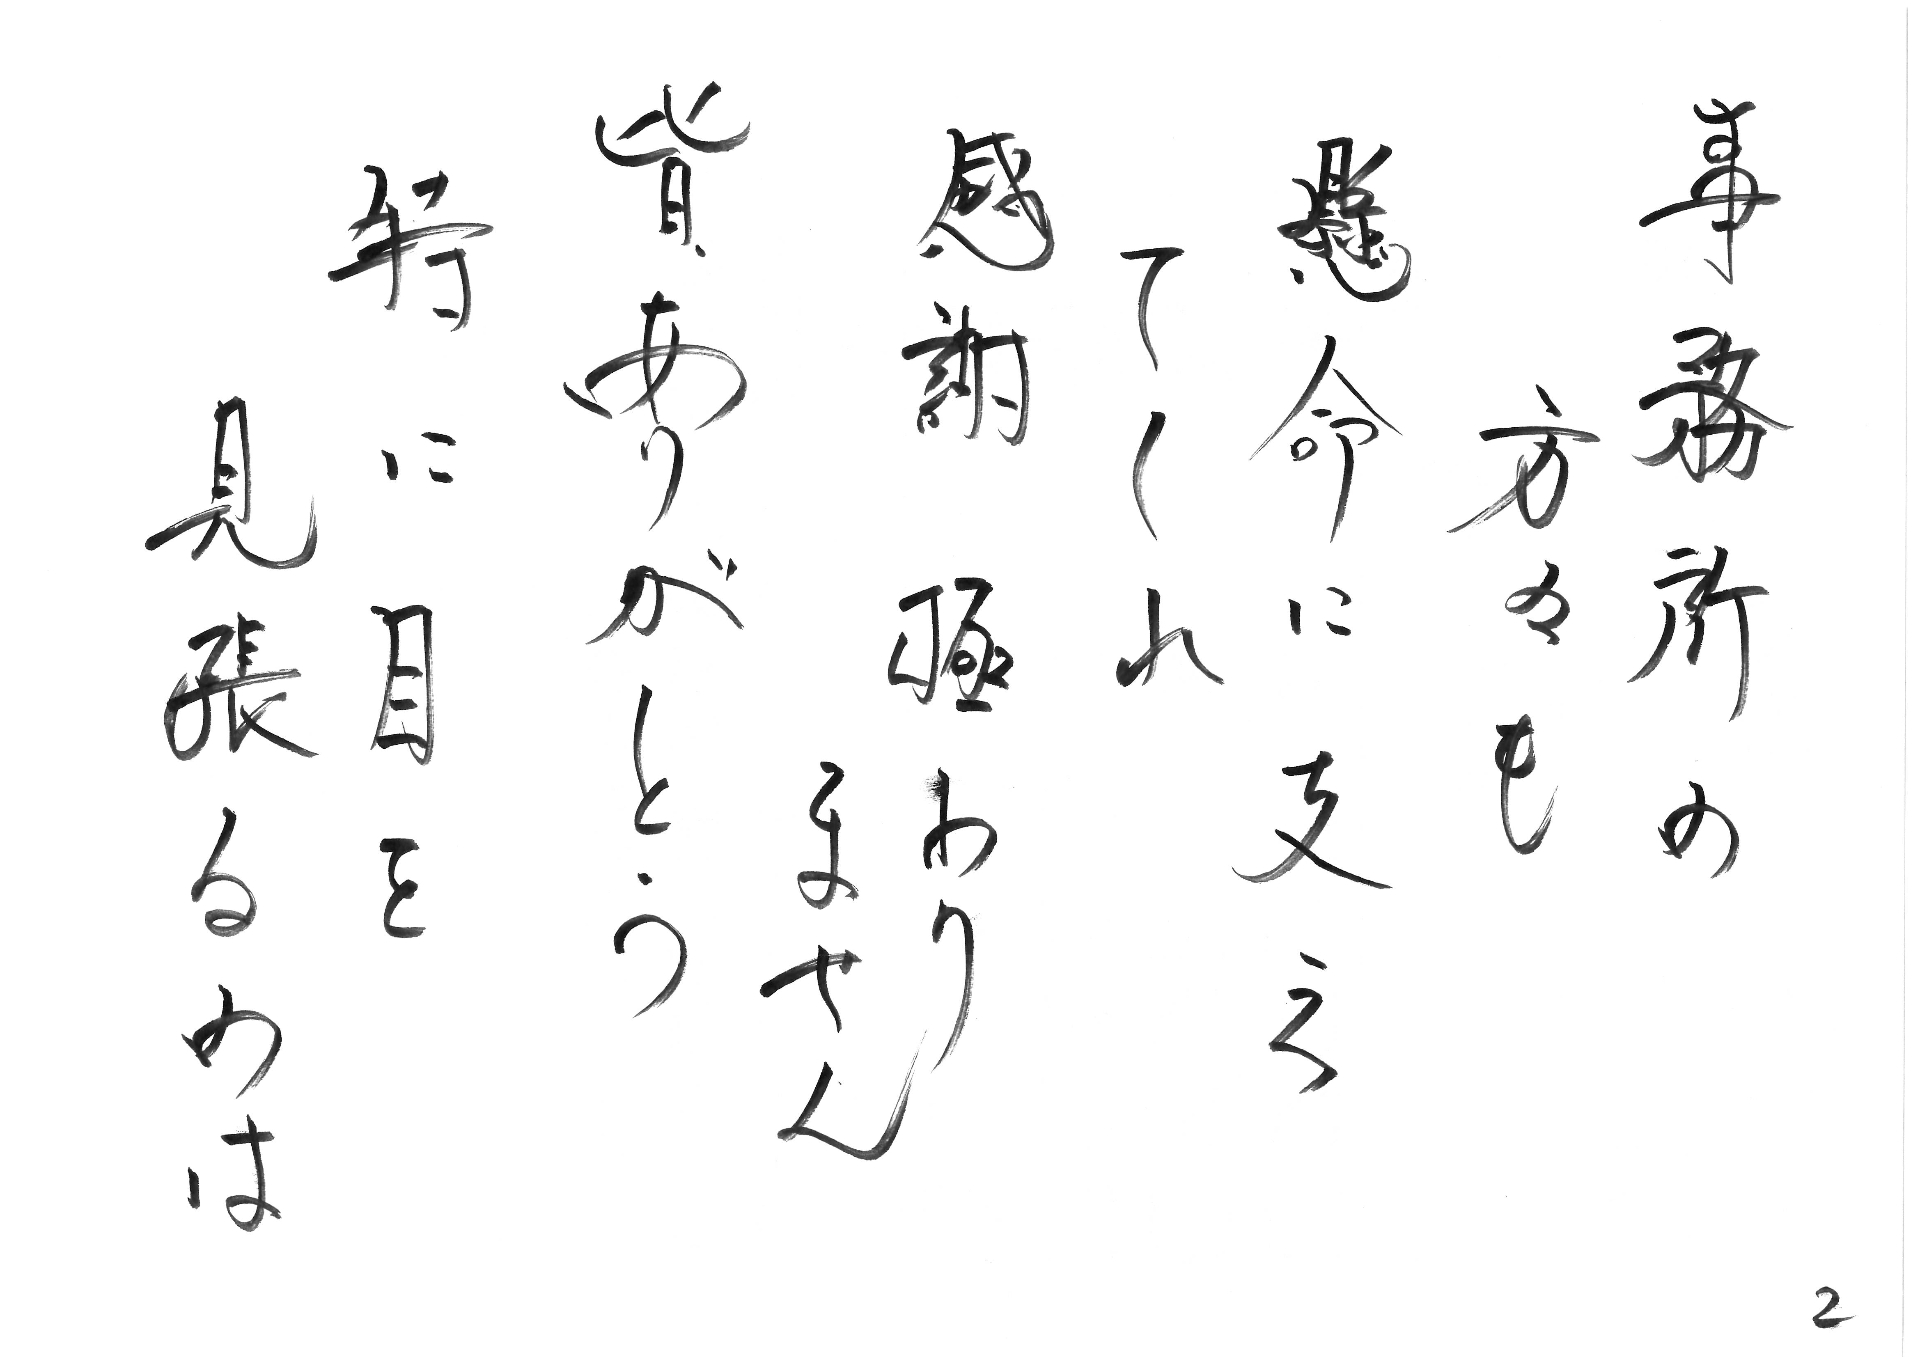 事務所の
方々も
懸命に支え
てくれ
感謝極わり
ません
皆、ありがとう
特に目を
見張るのは
2